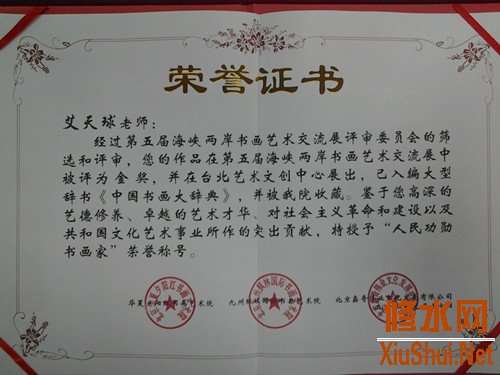 荣誉证书
艾天球老师：
经过第五届海峡两岸书画艺术交流展评审委员会的筛
选和评审，您的作品在第五届海峡两岸书画艺术交流展中
被评为金奖，并在台北艺术文创中心展出，已入编大型
辞书《中国书画大辞典》，并被我院收藏。鉴于您高深的
艺德修养、卓越的艺术才华、对社会主义革命和建设以及
共和国文化艺术事业所作的突出贡献，特授予“人民功勋
书画家”荣誉称号。
华夏夕阳红书画艺术院 九州枫林国际书画艺术院 北京鑫
修水网
XiuShui.Net